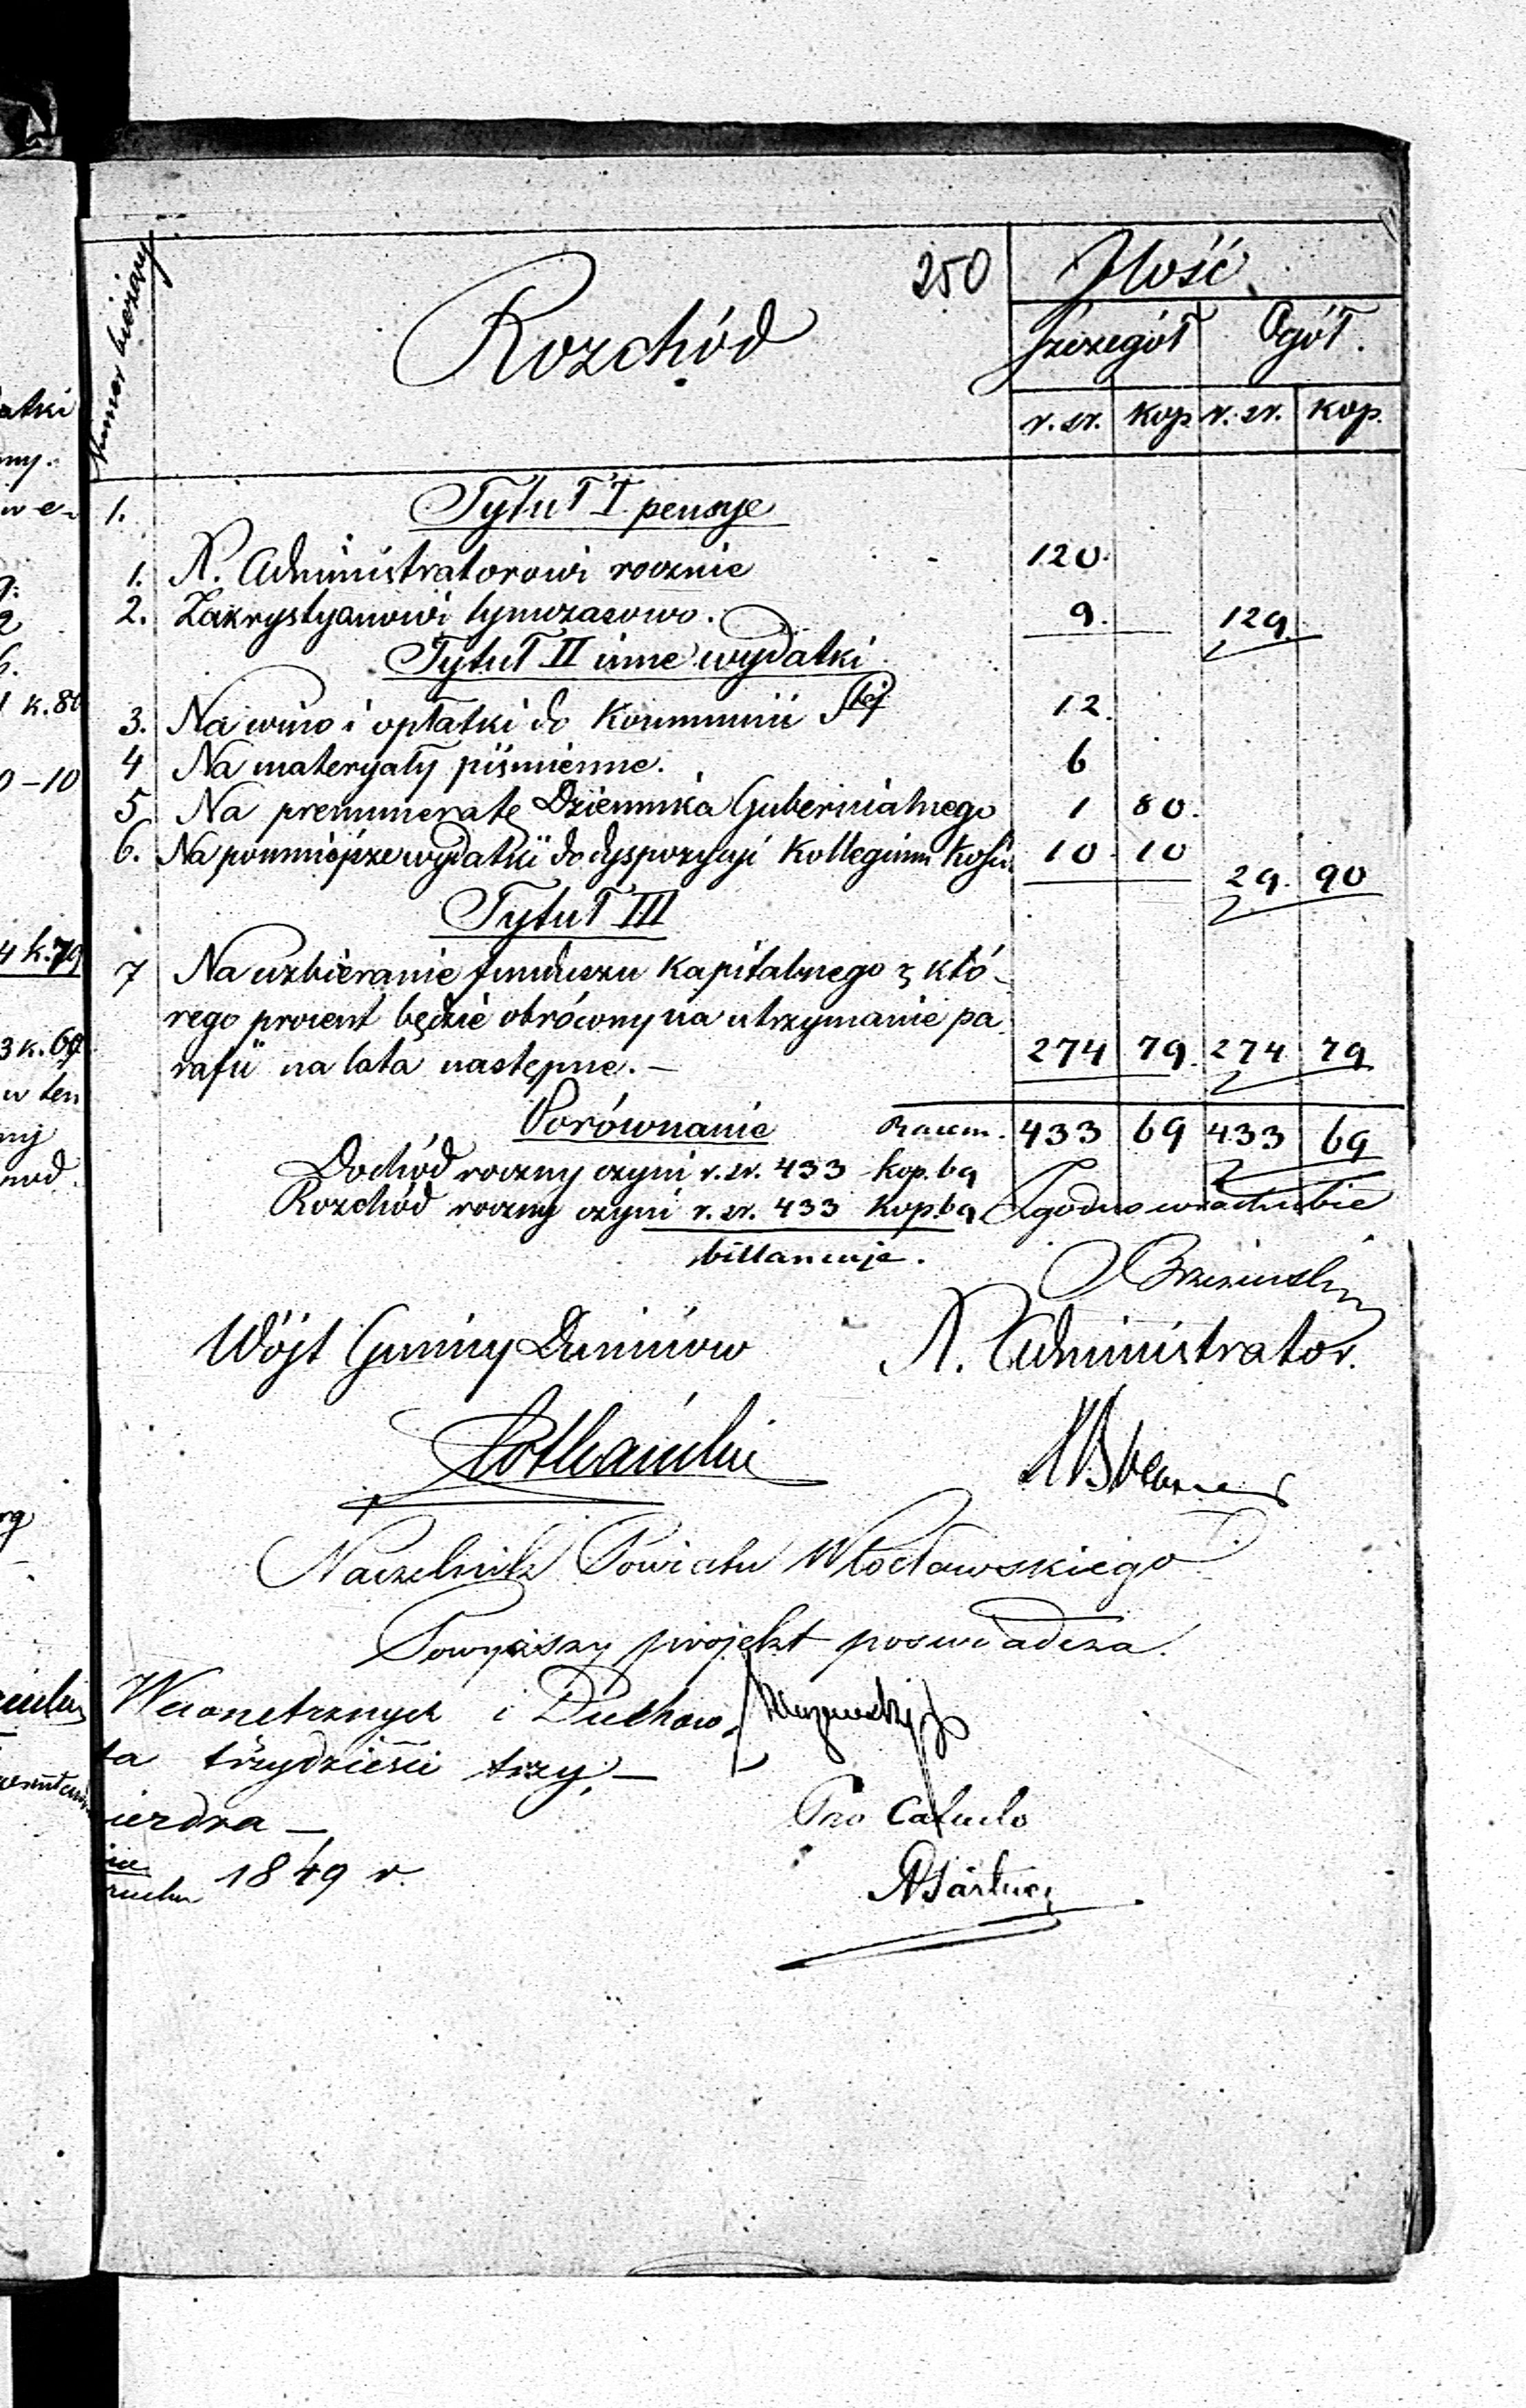 Numer bieżący
Rozchód
250
Ilość
Szczegół Ogół.
r. sr. kop. r. sr. kop.
1. Tytuł I pensye
1. X. Administratorowi rocznie 120.
2. Zakrystyanowi tymczasowo. 9. 129.
Tytuł II inne wydatki
3. Na wino i opłatki do Kommunii Stej 12.
4 Na materyały piśmienne. 6
5 Na prenumeratę Dziennika Gubernialnego 1 80.
6. Na pomniejsze wydatki do dyspozycyi Kollegium Kości. 10. 10 29. 90
Tytuł III
7 Na uzbieranie funduszu Kapitalnego z któ-
rego procent będzie obrócony na utrzymanie pa
rafii na lata następne. — 274 79. 274 79
Porównanie Razem. 433 69 433 69
Dochód roczny czyni r. sr. 433 kop. 69
Rozchód roczny czyni r. sr. 433 kop. 69 Zgodno w rachubie
billancuje.
Brzezinski
Wójt Gminy Duninow X. Administrator.
Naczelnik Powiatu Włocławskiego
Powyższy projekt poswiadcza.
Wewnetrznych i Duchow.
ta trzydzieści trzy, —
ierdza —
1849 r.
atki
ny.
k. 80
0-10
4 k. 79
3 k. 69
w ten